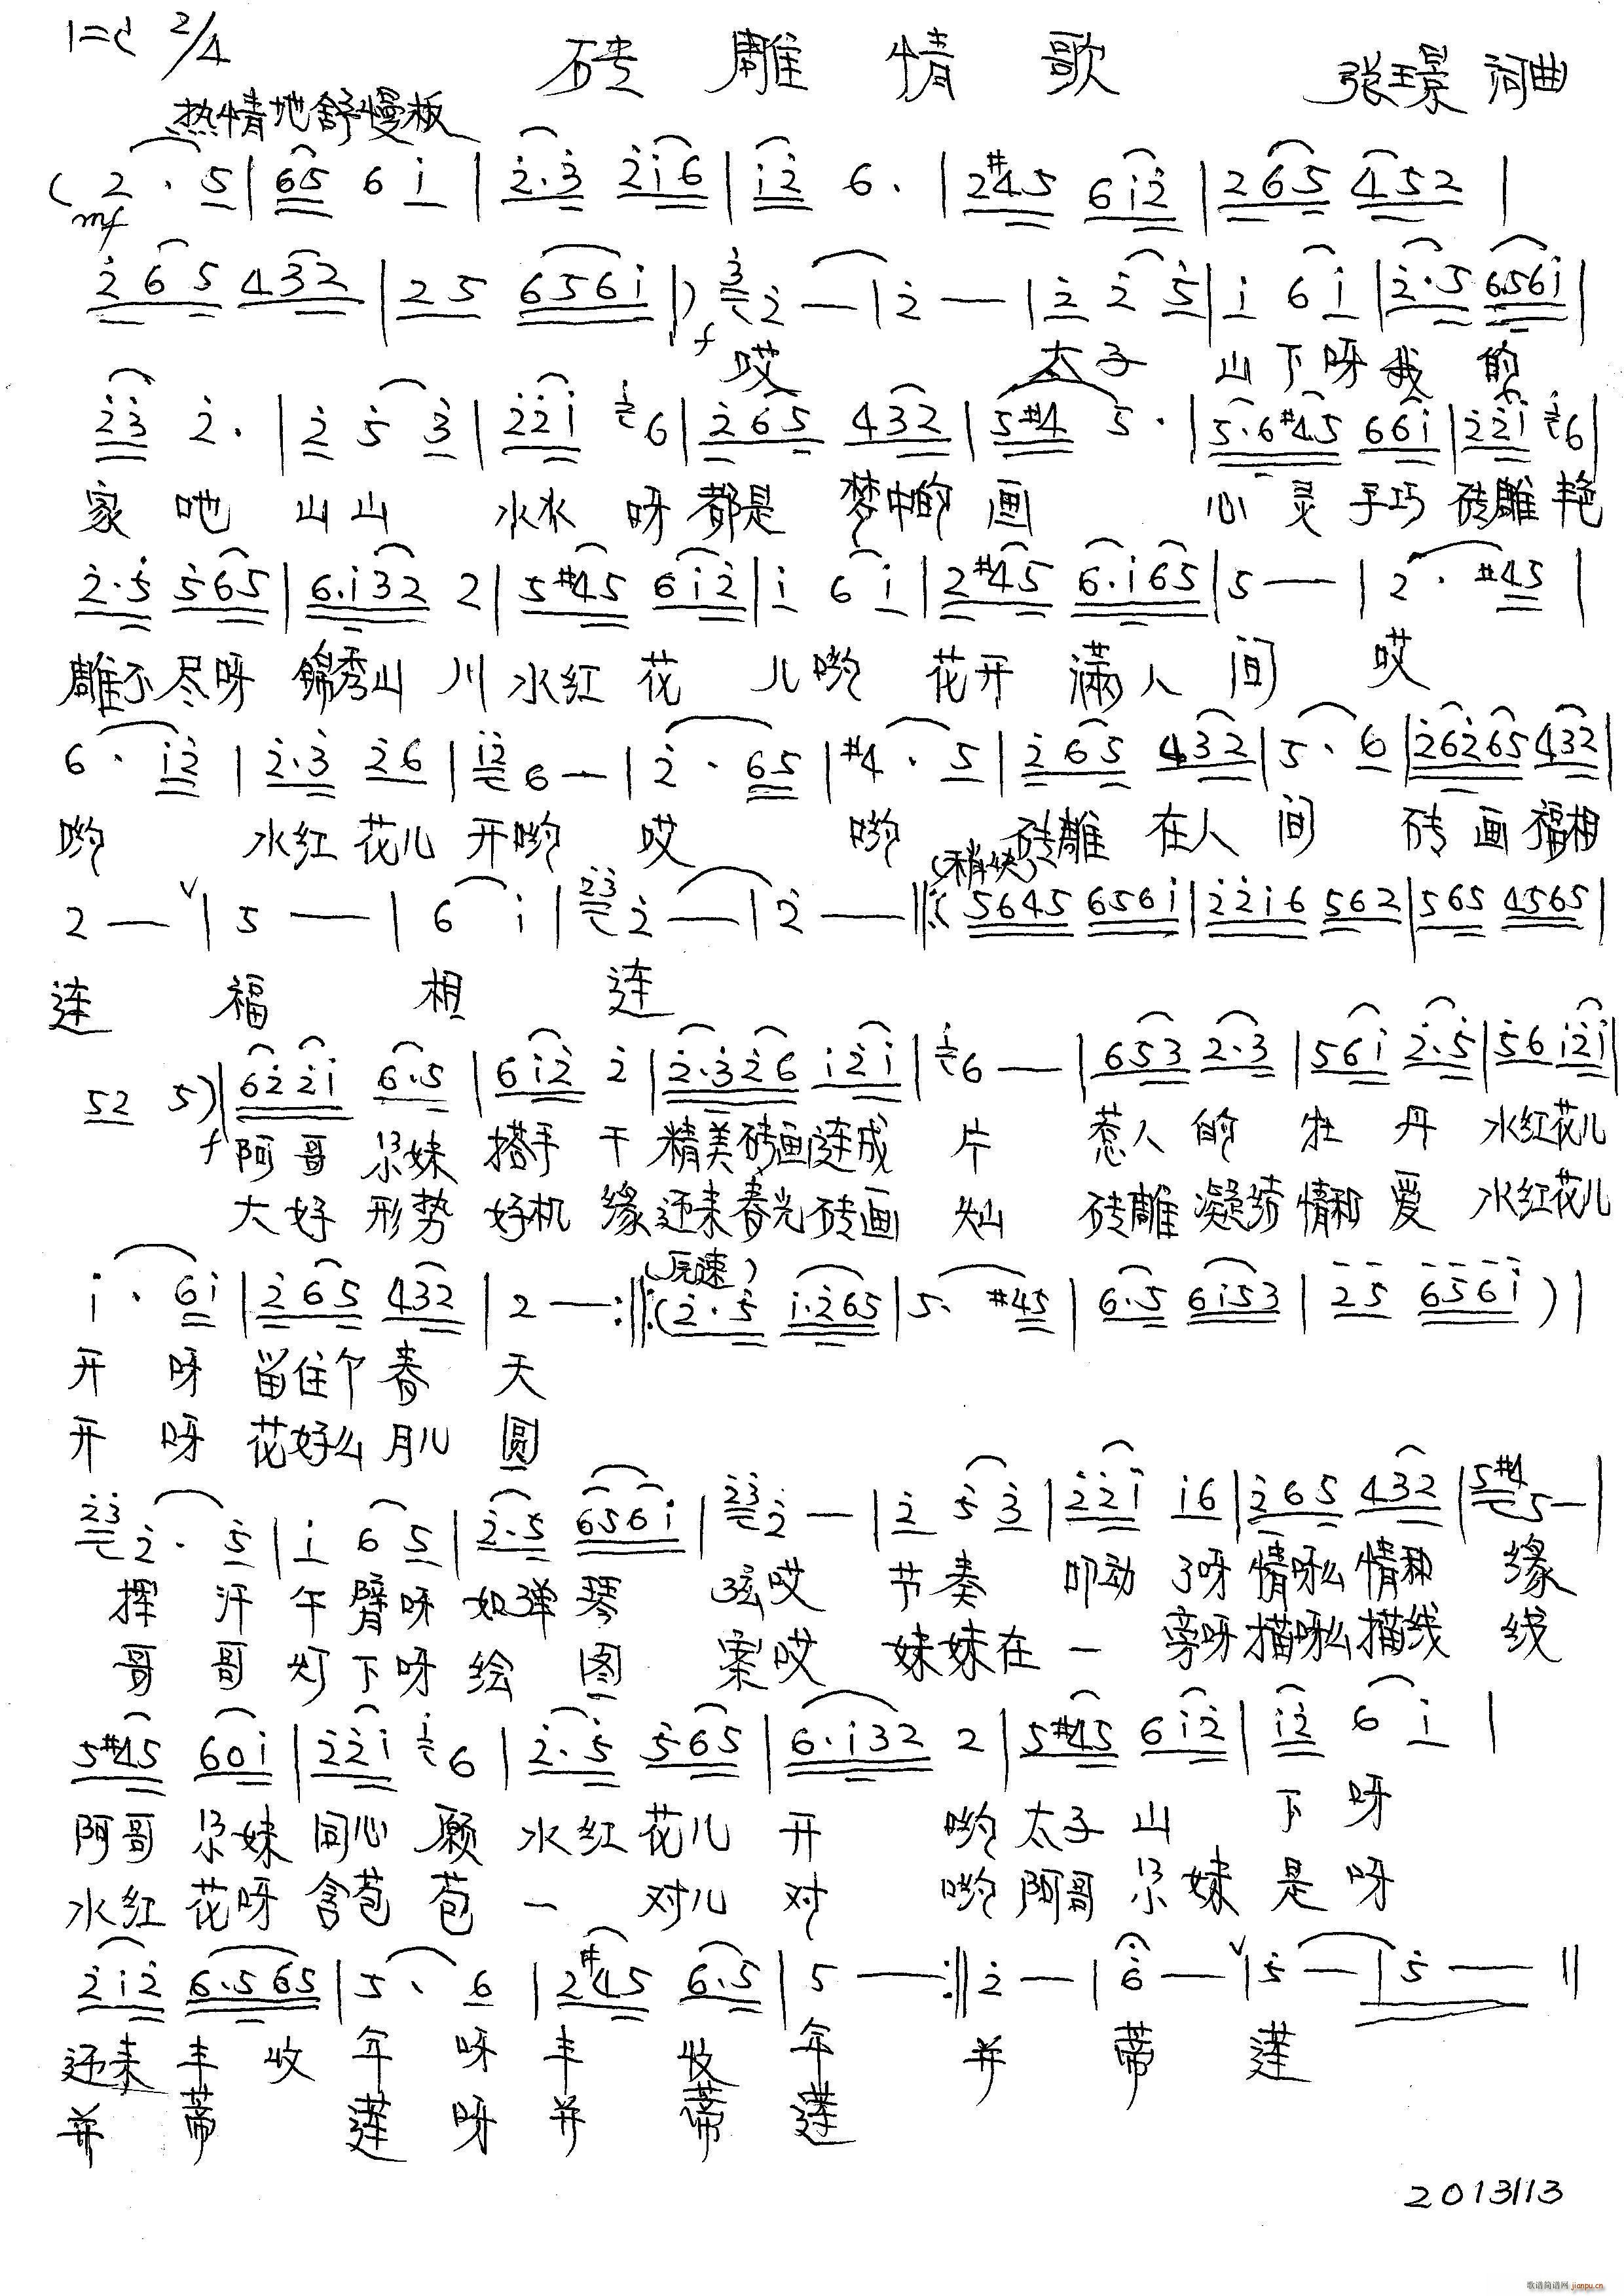 1=C 2/4
砖雕情歌
张璟 词曲
热情地舒慢板
( 2̇· 5 | 65 6 i | 2̇·3̇ 2̇i6 | i2̇ 6· | 2#45 6i2̇ | 265 452 |
mf
2̇65 432 | 25 656i | ) 3̇2̇ — | 2̇ — | 2̇ 2̇ 5̇ | i 6 i | 2̇·5 656i |
f 哎 太子 山下呀我 的
2̇3̇ 2̇· | 2̇ 5̇ 3̇ | 2̇2̇i i6 | 2̇65 432 | 5#4 5· | 5·6#45 66i | 2̇2̇i i6 |
家 吔 山山 水水 呀都是 梦中的 画 心灵手巧 砖雕艳
2̇·5̇ 5̇65 | 6·i32 2 | 5#45 6i2̇ | i 6 i | 2#45 6·i65 | 5 — | 2· #45 |
雕不尽呀 锦秀山川 水红花 儿哟 花开 满人间 哎
6· i2̇ | 2̇·3̇ 2̇6 | i2̇6 — | 2̇· 65 | #4· 5 | 2̇65 432 | 5· 6 | 2̇62̇65 432 |
哟 水红花儿 开哟 哎 哟 砖雕 在人间 砖画福相
(稍快)
2 — ∨ | 5 — | 6 i | 2̇3̇2̇ — | 2̇ — ‖: ( 5645 656i | 2̇2̇i6 562 | 565 4565 |
连 福 相 连
52 5) | 62̇2̇i 6·5 | 6i2̇ 2̇ | 2̇·3̇2̇6 i2̇i | i6 — | 653 2·3 | 56i 2̇·5̇ | 5̇6 i2̇i |
f 阿哥尕妹 搭手干 精美砖画连成 片 惹人的牡丹 水红花儿
大好形势 好机缘 迎来春光砖画 灿 砖雕凝结情和爱 水红花儿
(原速)
i· 6i | 2̇65 432 | 2 — :‖: ( 2̇·5̇ i·2̇65 | 5· #45 | 6·5 6i53 | 25 656i ) |
开 呀 留住个春 天
开 呀 花好么月儿 圆
2̇3̇2̇· 5̇ | i 6 5 | 2̇·5 656i | 2̇3̇2̇ — | 2̇ 5̇ 3̇ | 2̇2̇i i6 | 2̇65 432 | 5#45 — |
挥汗午臂呀 如弹琴 弦哎 节奏 叩动 了呀情呀么情和 缘
哥哥灯下呀绘图 案哎 妹妹在一 旁呀描呀么描线 线
5#45 60i | 2̇2̇i i6 | 2̇·5̇ 5̇65 | 6·i32 2 | 5#45 6i2̇ | i2̇ 6 i |
阿哥尕妹 同心愿 水红花儿 开 哟 太子山 下 呀
水红花呀 含苞苞 一 对儿 对 哟 阿哥尕妹 是 呀
2̇i2̇ 6·565 | 5· 6 | 2#45 6·5 | 5 — :‖ 2̇ — | 6̇ — ∨ | 5̇ — | 5̇ — ‖
迎来丰收年 呀 丰收 年 并 蒂 莲
并蒂 莲 呀 并蒂 莲
20131113
歌谱简谱网
jianpu.cn